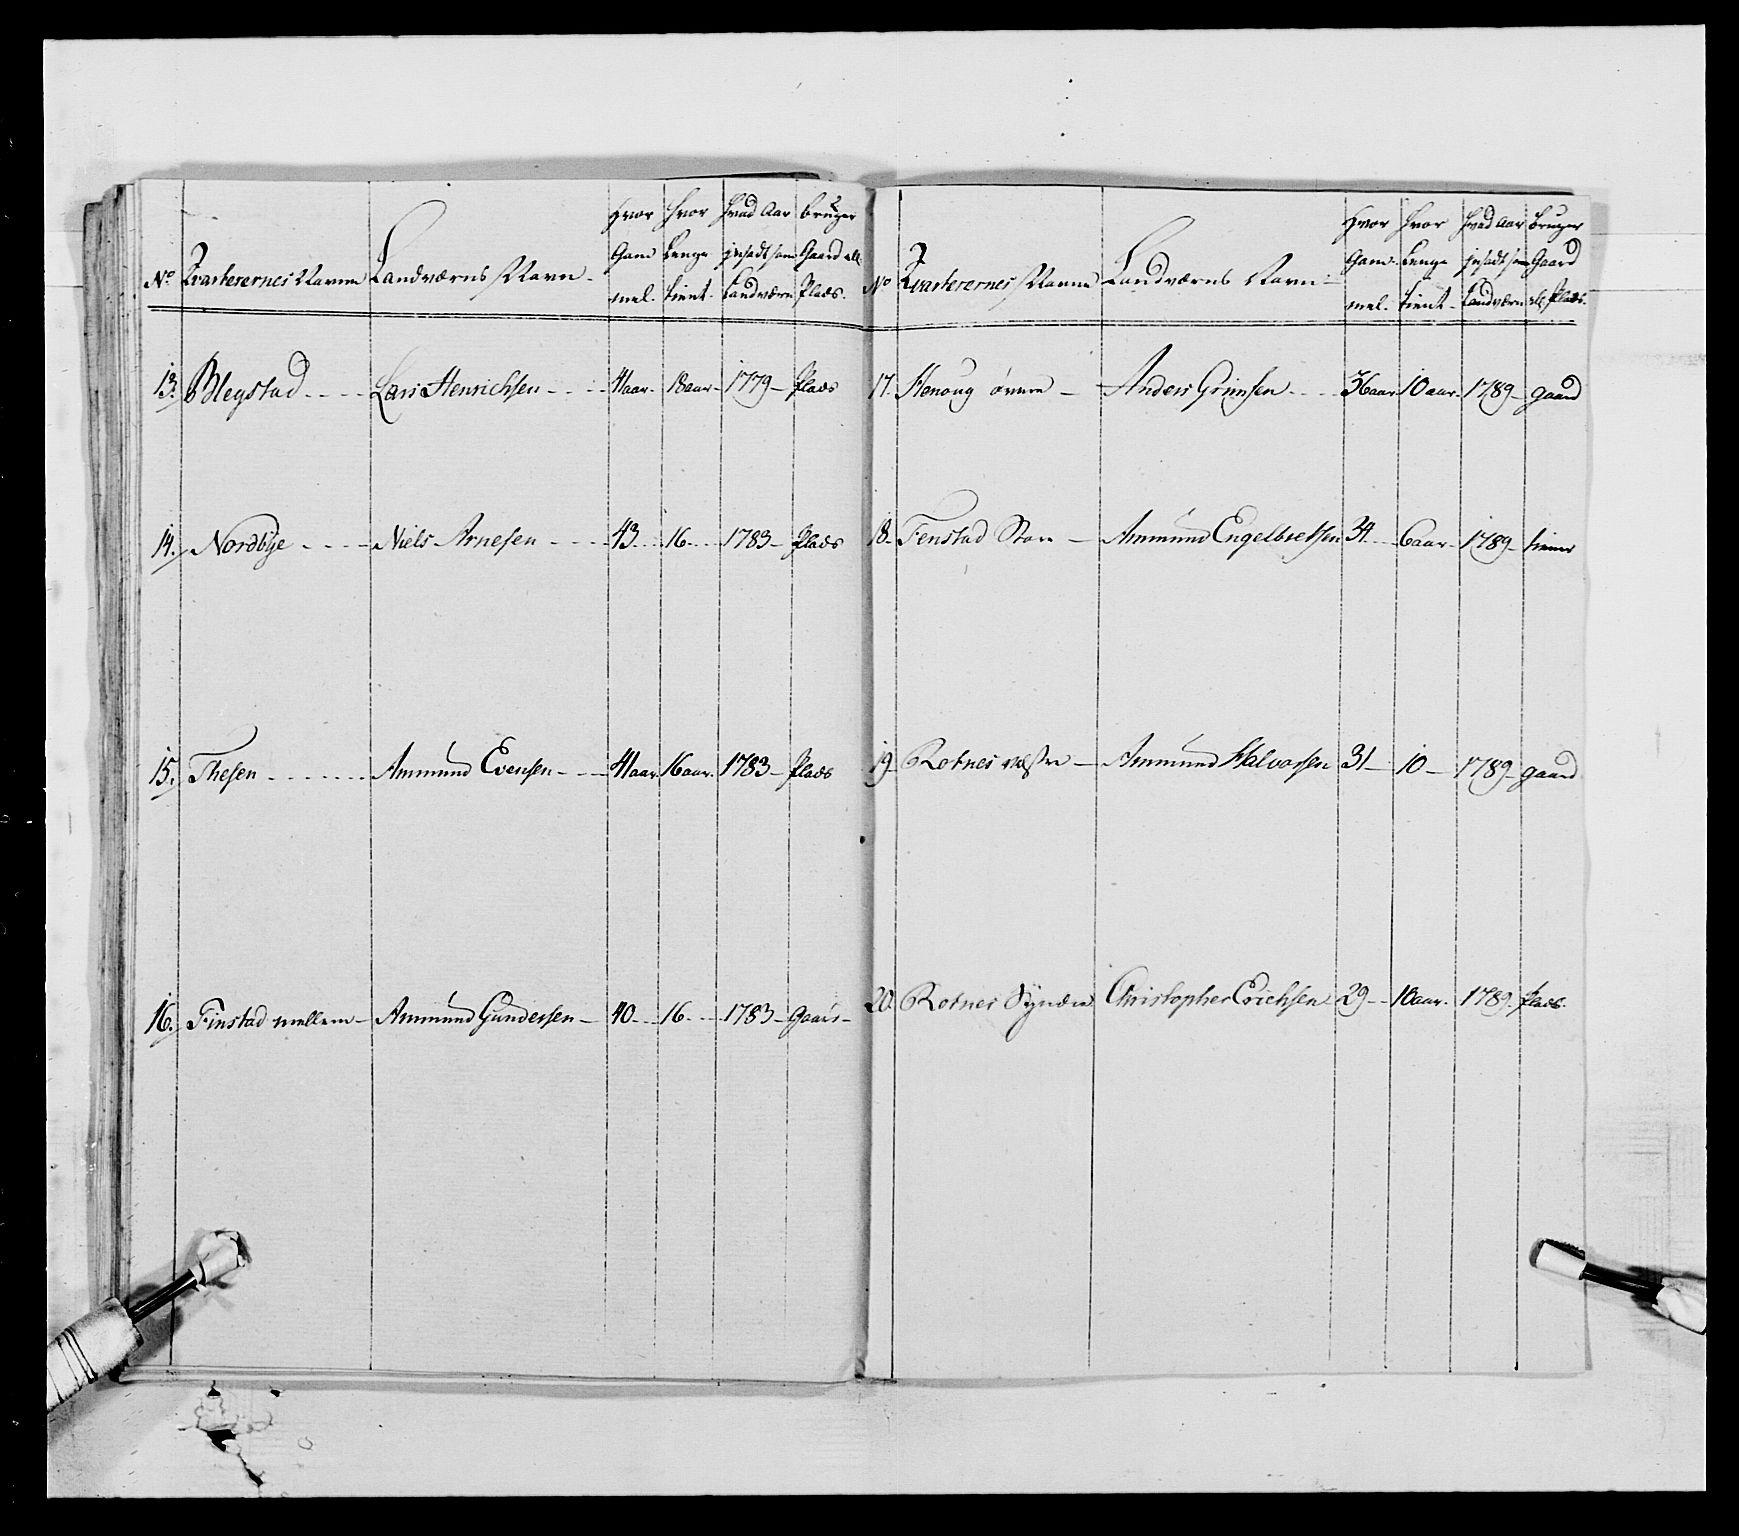 No Kvarterernes Navne Landværns Navn Hvor Gammel. Hvor Lenge tient. Hvad Aar indsadt som Landværn Bruger Gaard ell: Plads.
13. Blegstad Lars Henrichsen 41 aar 18 aar 1779 Plads
14. Nordbye Niels Arnesen 43 16 1783 Plads
15. Thesen Ammund Evensen 41 aar 16 aar. 1783 Plads
16. Finstad mellem Ammund Gundersen 40 16 1783
No Kvarterernes Navne Landværns Navn Hvor Gammel. Hvor Lenge tient Hvad Aar indsadt som Landværn Bruger Gaard ell: Plads.
17. Henoug övere Anders Grimsen 36 aar 10 aar 1789 gaard
18. Fenstad Store Ammund Engelbretsen 34 6 aar 1789 tiener
19. Rotnes væstre Ammund Halvorsen 31 10 1789 gaard
20. Rotnes Syndre Christopher Erichsen 29 10 aar. 1789 Plads.